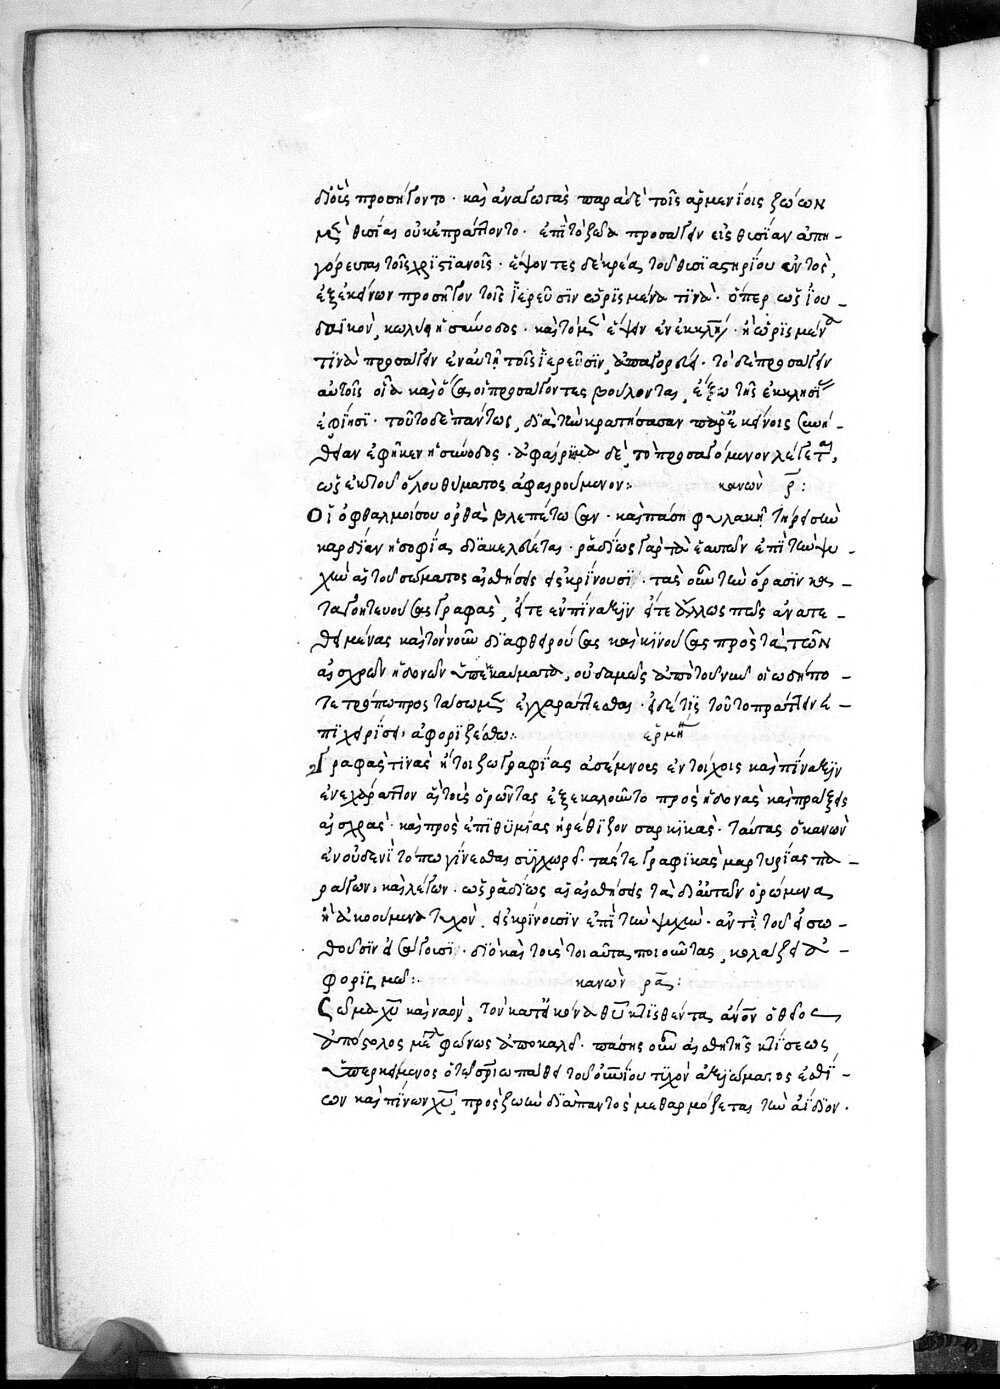 δίοις προσήγοντο· καὶ ἀναλωταὶ παρὰ δὲ τοῖς ἀρμενίοις ζώων
μὲν θυσίας οὐκ ἐπράττοντο· ἐπὶ τὸ ζῶα προσαγεῖν εἰς θυσίαν ἀπη-
γόρευται τοῖς χριστιανοῖς· ἕψοντες δὲ κρέας τοῦ θυσιαστηρίου ἐντὸς,
ἐξ ἐκείνων προσῆγον τοῖς ἱερεῦσιν ὡρισμένα τινὰ· ὅπερ ὡς ἰου-
δαϊκὸν, κωλύει ἡ σύνοδος· καὶ τὸ μὲν ἕψειν ἐν ἐκκλησίᾳ, ἢ ὡρισμένα
τινὰ προσάγειν ἐν αὐτῇ τοῖς ἱερεῦσιν, ἀπαγορεύει· τὸ δὲ προσάγειν
αὐτοῖς οἷα καὶ ὅσα οἱ προσάγοντες βούλονται, ἔξω τῆς ἐκκλησίας
ἐφίησι· τοῦτο δὲ πάντως, διὰ τὴν κρατήσασαν παρ' ἐκείνοις συνή-
θειαν ἐφῆκεν ἡ σύνοδος· ἀφαίρεμα δὲ, τὸ προσαγόμενον λέγεται,
ὡς ἐκ τοῦ ὅλου θύματος ἀφαιρούμενον: κανὼν ρ̅:
Οἱ ὀφθαλμοί σου ὀρθὰ βλεπέτωσαν· καὶ πάσῃ φυλακῇ τήρει σὴν
καρδίαν ἡ σοφία διακελεύεται· ῥαδίως γὰρ τὰ ἑαυτῶν ἐπὶ τὴν ψυ-
χὴν αἱ τοῦ σώματος αἰσθήσεις εἰσκρίνουσι· τὰς οὖν τὴν ὅρασιν κα-
ταγοητευούσας γραφὰς, εἴτε ἐν πίναξιν εἴτε ἄλλως πως ἀνατε-
θειμένας καὶ τὸν νοῦν διαφθειρούσας καὶ κινούσας πρὸς τὰ τῶν
αἰσχρῶν ἡδονῶν ὑπεκκαύματα, οὐδαμῶς ἀπὸ τοῦ νῦν οἱωδήπο-
τε τρόπω προστάσσομεν ἐγχαράττεσθαι· εἰ δέ τις τοῦτο πράττειν ἐ-
πιχειρήσει ἀφοριζέσθω: ἑρμη
Γραφάς τινας ἤτοι ζωγραφίας ἀσέμνους ἐν τοίχοις καὶ πίναξιν
ἐνεχάραττον αἳ τοὺς ὁρῶντας ἐξεκαλοῦντο πρὸς ἡδονὰς καὶ πράξεις
αἰσχρὰς· καὶ πρὸς ἐπιθυμίας ἠρέθιζον σαρκικάς· ταύτας ὁ κανὼν
ἐν οὐδενὶ τόπω γίνεσθαι συγχωρεῖ· τάς τε γραφικὰς μαρτυρίας πα-
ράγων, καὶ λέγων· ὡς ῥαδίως αἱ αἰσθήσεις τὰ δι' αὐτῶν ὁρώμενα
ἢ ἀκουόμενα τυχὸν, εἰσκρίνουσιν ἐπὶ τὴν ψυχὴν· ἀντὶ τοῦ εἰσω-
θοῦσιν εἰσάγουσι· διὸ καὶ τοὺς τοιαῦτα ποιοῦντας, κολάζει ἀ-
φορισμῷ: κανὼν ρα̅:
Σῶμα χυ καὶ ναὸν, τὸν κατ' εἰκόνα θυ κτισθέντα ἄνον ὁ θεῖος
ἀπόστολος μεγαλοφώνως ἀποκαλεῖ· πάσης οὖν αἰσθητῆς κτίσεως
ὑπερκείμενος ὁ τῶ σρίω πάθει τοῦ οὐνίου τυχὸν ἀξιώματος ἐσθί-
ων καὶ πίνων χν, πρὸς ζωὴν διαπαντὸς μεθαρμόζεται τὴν ἀΐδιον·